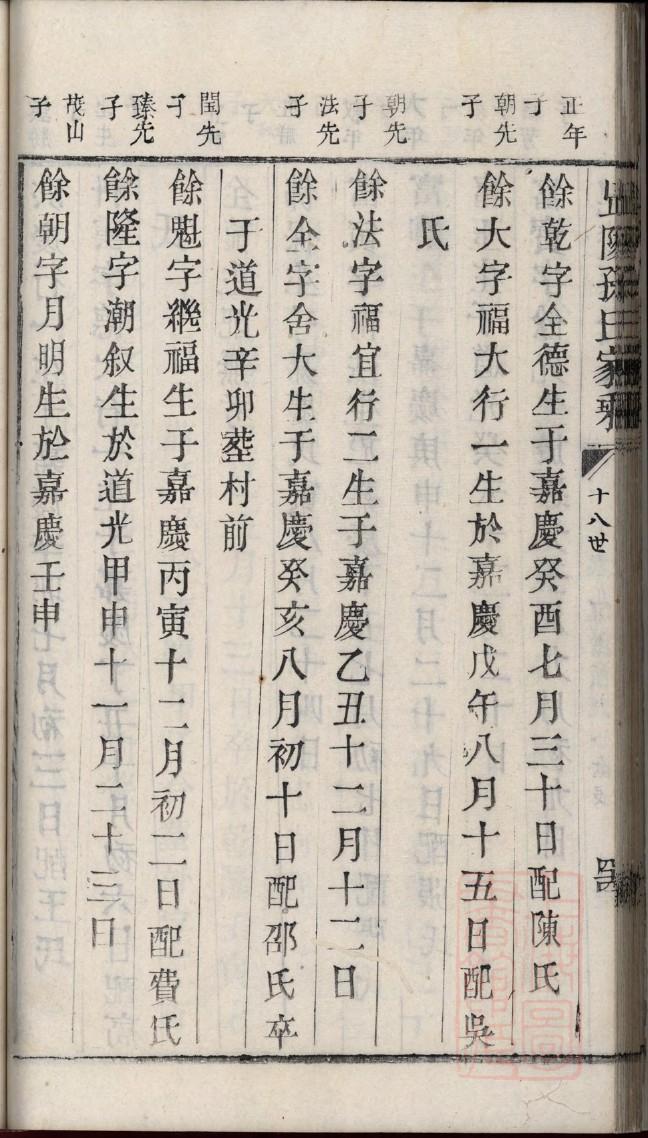 孫氏家乘
十八世
正年子
餘乾字全德生于嘉慶癸酉七月三十日配陳氏
朝先子
餘大字福大行一生於嘉慶戊午八月十五日配吳
氏
朝先子
餘法字福宜行二生于嘉慶乙丑十二月十二日
法先子
餘全字舍大生于嘉慶癸亥八月初十日配邵氏卒
于道光辛卯塟村前
閏先子
餘魁字繼福生于嘉慶丙寅十二月初二日配費氏
臻先子
餘隆字潮叙生於道光甲申十一月二十三日
茂山子
餘朝字月明生於嘉慶壬申